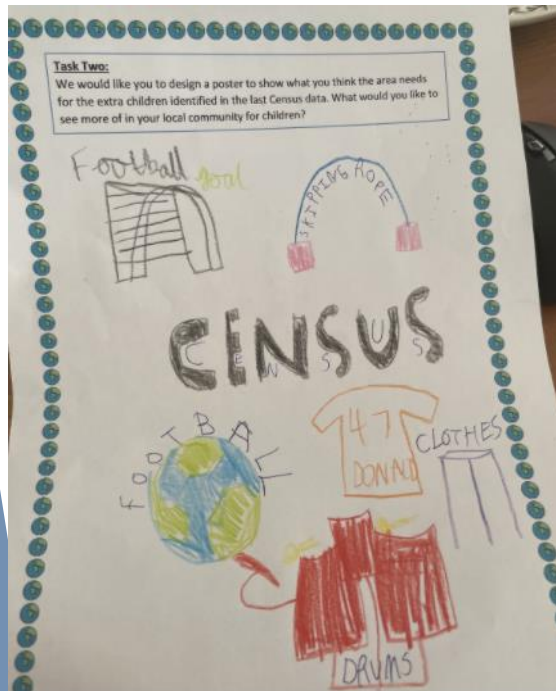 Task Two:
We would like you to design a poster to show what you think the area needs
for the extra children identified in the last Census data. What would you like to
see more of in your local community for children?
Football goal
SKIPPING ROPE
CENSUS
CENSUS
FOOTBALL
47
DONALD
CLOTHES
DRUMS